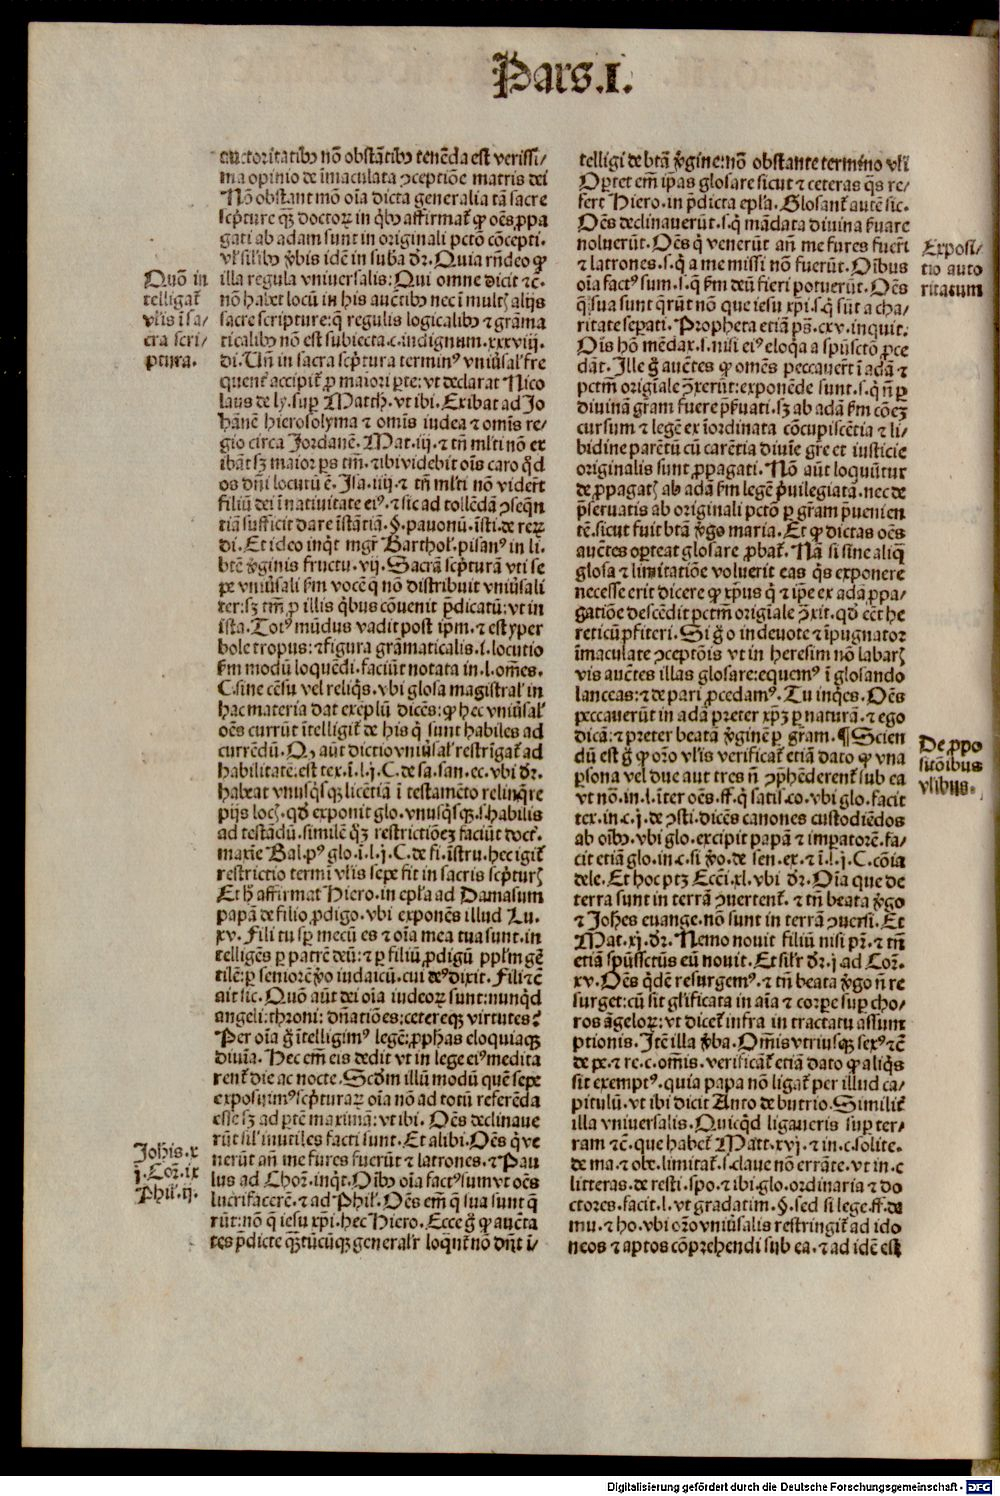 Pars.I.
auctoritatibꝫ nō obstātibꝫ tenēda est verissi/
ma opinio de īmaculata ↄceptiōe matris dei
Nō obstant mō oīa dicta generalia tā sacre
scp̄ture qꝫ doctoꝝ in qͥbꝫ affirmat̄ ꝙ oēs ꝓpa
gati ab adam sunt in originali pctō cōcepti.
vl̓ silībꝫ v̄bis idē in suba dr̄. Quia rn̄deo ꝙ
Quō in
illa regula vniuersalis: Qui omne dicit ⁊c̄.
telligat̄
nō habet locū in his auctībꝫ nec ī mult̓ alijs
vl̓is ī sa/
sacre scripture: qͥ regulis logicalibꝫ ⁊ grāma
cra scri/
ticalibꝫ nō est subiecta. c. indignum. xxxviij.
ptura.
di. Un̄ in sacra scp̄tura terminꝰ vniūsal̓ fre
quent̄ accipit̄ ꝓ maiori ꝑte: vt declarat Nico
laus de ly. suꝑ Matth. vt ibi. Exibat ad Jo
hānē hierosolyma ⁊ omīs iudea ⁊ omīs re/
gio circa Jordanē. Mat. iij. ⁊ tn̄ ml̓ti nō ex
ibāt sꝫ maior ps tm̄. ⁊ ibi videbit oīs caro qđ
os dn̄i locutū ē. Isa. iiij. ⁊ tn̄ ml̓ti nō vider̄t
filiū dei ī natiuitate eiꝰ. ⁊ sic ad tollēdā ↄseqn̄
tiā sufficit dare īstātiā. §. pauonū. īsti. de reꝝ
di. Et ideo inqͥt mgr̄ Barthol̓. pisanꝰ in li.
btē v̄ginis fructu. vij. Sacrā scp̄turā vti se
pe vniūsali ẜm vocē qͥ nō distribuit vniūsali
ter: sꝫ tm̄ ꝓ illis qͥbus cōuenit p̄dicatū: vt in
ista. Totꝰ mūdus vadit post ip̄m. ⁊ est yper
bole tropus: ⁊ figura grāmaticalis. i. locutio
ẜm modū loquēdi. faciūt notata in. l. oēs.
C. sine cēsu vel reliqͥs. vbi glosa magistral̓ in
hac materia dat exēplū dicēs: ꝙ hec vniūsal̓
oēs currūt ītelligit̄ de his qͥ sunt habiles ad
currēdū. Qꝙ aūt dictio vniūsal̓ restrīgat̄ ad
habilitatē. est tex. ī. l. j. C. de sa. san. ec. vbi dr̄.
habeat vnusqͥsqꝫ licētiā ī testamēto relinqͥre
pijs loc̓. qđ exponit glo. vnusqͥsqꝫ. s. habilis
ad testādū. similē qͣꝫ restrictiōeꝫ faciūt doct̄.
maxīe Bal. pꝰ glo. ī. l. j. C. de fi. īstru. hec igit̄
restrictio termī vl̓is sepe fit in sacris scp̄tur̓
Et h̄ affirmat Hiero. in epl̓a ad Damasum
papā de filio ꝓdigo. vbi exponēs illud Lu.
xv. Fili tu sꝑ mecū es ⁊ oīa mea tua sunt. in
telligēs ꝑ patrē deū: ⁊ ꝑ filiū ꝓdigū pplm gē
tilē: ꝑ seniorē v̄o iudaicū. cui deꝰ dixit. Fili ⁊c̄
ait sic. Quō aūt dei oīa iudeoꝝ sunt: nunqͥd
angeli: throni: dn̄atiōes: cetereqꝫ virtutes?
Per oīa g̊ ītelligimꝰ legē: ꝓphas eloquiaqꝫ
diuīa. Hec em̄ eis dedit vt in lege eiꝰ medita
rent̄ die ac nocte. Scd̄m illū modū quē sepe
exposuimꝰ scp̄turaꝝ oīa nō ad totū referēda
esse sꝫ ad ptē maximā: vt ibi. Oēs declinaue
Johis. x
rūt sil̓ inutiles facti sunt. Et alibi. Oēs qͥ ve
j. Cor̄. ix
nerūt an̄ me fures fuerūt ⁊ latrones. ⁊ Pau
Phil̓. ij.
lus ad Chor̄. inqͥt. Oībꝫ oīa factꝰ sum vt oēs
lucrifacerē. ⁊ ad Phil̓. Oēs em̄ q̄ sua sunt q̄
rūt: nō q̄ iesu xp̄i. hec Hiero. Ecce g̊ ꝙ aucta
tes p̄dicte qͣꝫtūcūqꝫ general̓r loqūt̄ nō dn̄t ī/
telligi de btā v̄gine: nō obstante termīno vl̓i
Oꝑtet em̄ ip̄as glosare sicut ⁊ ceteras qͣs re/
fert Hiero. in p̄dicta epl̓a. Glosant̄ autē sic.
Oēs declinauerūt. s. qͥ mādata diuina ẜuare
noluerūt. Oēs qͥ venerūt an̄ me fures fuer̄t
Exposi/
⁊ latrones. s. qͥ a me missi nō fuerūt. Oībus
tio aucto
oīa factꝰ sum. s. qͥ ẜm deū fieri potuerūt. Oēs
ritatum
q̄ sua sunt qͥrūt nō que iesu xp̄i. s. qͥ sūt a cha/
ritate sepati. Propheta etiā ps̄. cxv. inquit:
Oīs hō mēdax. s. nisi eiꝰ eloqͥa a spūsctō ꝓce
dāt. Ille g̊ auctes ꝙ omēs peccauer̄t ī adā ⁊
pctm̄ origīale ↄ̄xerūt: exponēde sunt. s. qͥ n̄ ꝑ
diuinā grām fuere p̄ẜuati. sꝫ ab adā ẜm cōeꝫ
cursum ⁊ legē ex īordinata cōcupiscētia ⁊ li/
bidine parētū cū carētia diuīe gr̄e et iusticie
originalis sunt ꝓpagati. Nō aūt loquūtur
de ꝓpagat̓ ab adā ẜm legē p̄uilegiatā. nec de
p̄seruatis ab originali pctō ꝑ grām p̄uenien
tē. sicut fuit btā v̄go maria. Et ꝙ dictas oēs
auctes opteat glosare ꝓbat̄. Nā si sine aliqͣ
glosa ⁊ limitatiōe voluerit eas qͥs exponere
necesse erit dicere ꝙ xp̄us qͥ ⁊ ip̄e ex adā ꝓpa/
gatiōe descēdit pctm̄ origīale ↄ̄xit. qđ eēt he
reticū ꝓfiteri. Si g̊ o indeuote ⁊ īpugnator
īmaculate ↄceptōis vt in heresim nō labar̓
vis auctes illas glosare: equemꝰ ī glosando
lanceas: ⁊ de pari ꝓcedamꝰ. Tu inqͥes. Oēs
peccauerūt in adā preter xp̄ꝫ ꝑ naturā. ⁊ ego
dicā: ⁊ preter beatā v̄ginē ꝑ grām. ¶ Scien
De ꝓpo
dū est g̊ ꝙ orō vl̓is verificat̄ etiā dato ꝙ vna
sitōibus
ꝑsona vel due aut tres n̄ ↄp̄hēderent̄ sub ea
vl̓ibus.
vt nō. in. l. īter oēs. ff. qͥ satis. co. vbi glo. facit
tex. in. c. j. de ↄsti. dicēs canones custodiēdos
ab oībꝫ. vbi glo. excipit papā ⁊ imꝑatorē. fa/
cit etiā glo. in. c. si v̄o. de sen. ex. ⁊ ī. l. j. C. cōia
dele. Et hoc ptꝫ Ecc̄i. xl. vbi dr̄. Oīa que de
terra sunt in terrā ↄuertent̄. ⁊ tn̄ beata v̄go
⁊ Johes euange. nō sunt in terrā ↄuersi. Et
Mat. xj. dr̄. Nemo nouit filiū nisi pr̄. ⁊ tn̄
etiā spūssctūs eū nouit. Et sil̓r dr̄. j. ad Cor̄.
xv. Oēs qͥdē resurgemꝰ. ⁊ tn̄ beata v̄go n̄ re
surget: cū sit gl̓ificata in aīa ⁊ corꝑe suꝑ cho/
ros āgeloꝝ: vt dicet̄ infra in tractatu assum
ptionis. Itē illa v̄ba. Omīs vtriusqꝫ sexꝰ ⁊c̄
de pe. ⁊ re. c. omīs. verificāt̄ etiā dato ꝙ aliqͥs
sit exemptꝰ. quia papa nō ligat̄ per illud ca/
pitulū. vt ibi dicit Anto de butrio. Similit̄
illa vniuersalis. Quicqͥd ligaueris suꝑ ter/
ram ⁊c̄. que habet̄ Matt. xvj. ⁊ in. c. solite.
de ma. ⁊ obe. limitat̄. s. claue nō errāte. vt in. c
litteras. de resti. spo. ⁊ ibi glo. ordinaria ⁊ do
ctores. facit. l. vt gradatim. §. sed si lege. ff. de
mu. ⁊ ho. vbi orō vniūsalis restringit̄ ad ido
neos ⁊ aptos cōprehendi sub ea. ⁊ ad idē est
Digitalisierung gefördert durch die Deutsche Forschungsgemeinschaft - DFG